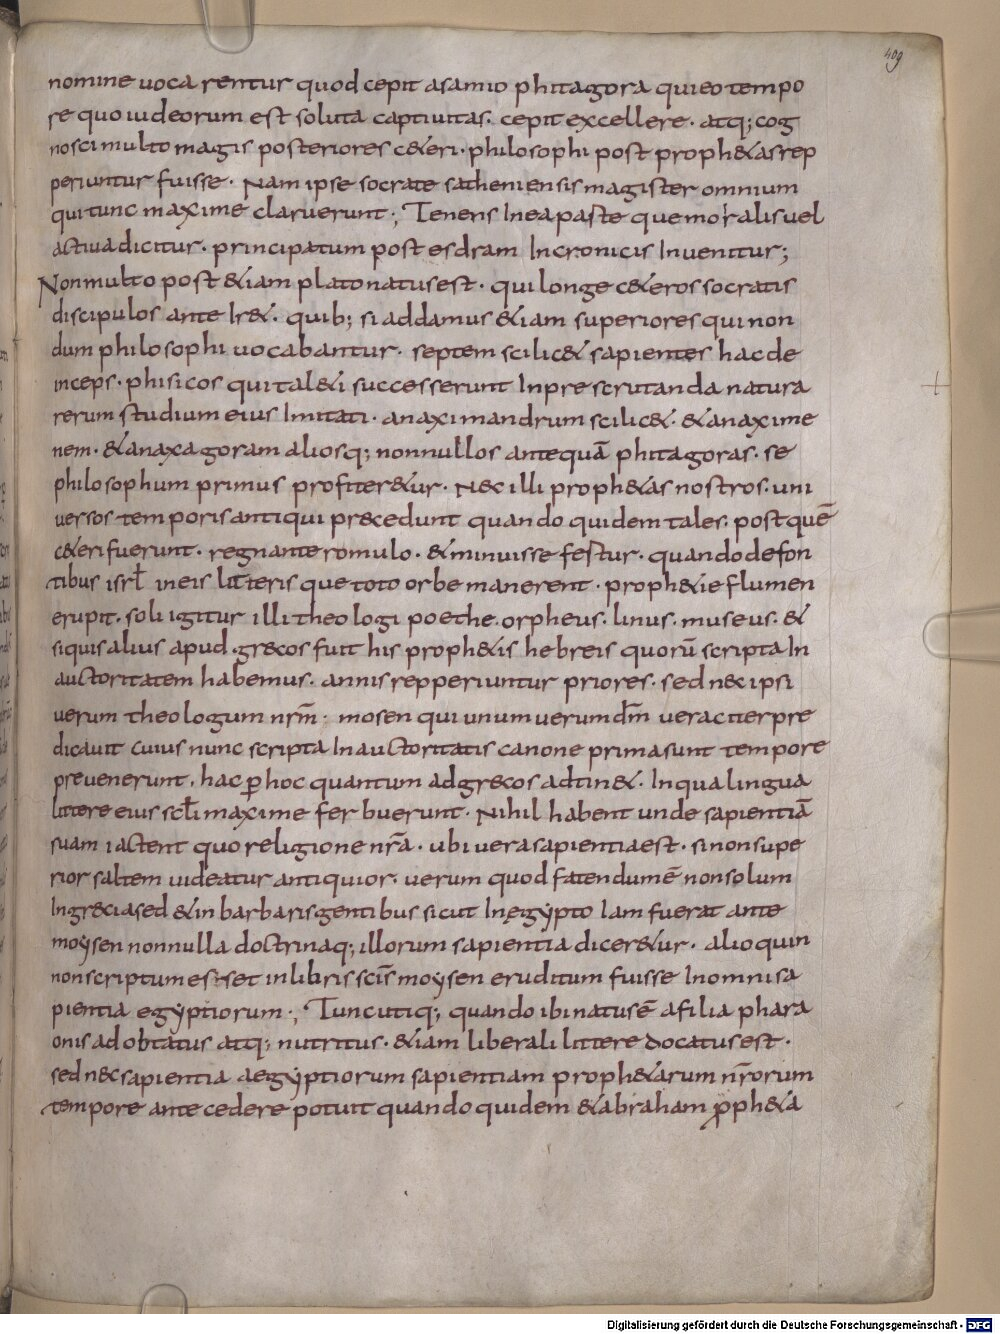 409
nomine uoca rentur quod cepit asamio phitagora quieo tempo
re quo iudeorum est soluta captiuitas. cepit excellere. atq; cog
nosci multo magis posteriores c&eri. philosophi post proph&as rep
periuntur fuisse. Nam ipse socrate satheniensis magister omnium
qui tunc maxime claruerunt; Tenens In ea paste que moralis uel
actiua dicitur. principatum post esdram In cronicis Inuenitur;
Non multo post &iam plato natus est. qui longe c&eros socratis
discipulos ante Ir&. quib; si addamus &iam superiores qui non
dum philosophi uocabantur. septem scilic& sapientes hac de
inceps. phisicos qui tal&i successerunt In prescrutanda natura
rerum studium eius Imitati. anaximandrum scilic&. &anaxime
nem. &anaxagoram aliosq; nonnullos antequā phitagoras. se
philosophum primus profiter&ur. Nec illi proph&as nostros. uni
uersos temporis antiqui precedunt quando quidem tales. post quē
c&eri fuerunt. regnante romulo. &minuisse festur. quando defon
tibus isrł in eis litteris que toto orbe manerent. proph&ie flumen
erupit. soli igitur illi theologi poethe. orpheus. linus. museus. &
siquis alius apud. grecos fuit his proph&is hebreis quorū scripta In
auctoritatem habemus. annis repperiuntur priores. sed nec ipsi
uerum theologum nr̄m. mosen qui unum uerum dm̄ ueraciter pre
dicauit cuius nunc scripta In auctoritatis canone prima sunt tempore
preuenerunt. hac ꝑ hoc quantum ad grecos adtin&. In qua lingua
littere eius scłi maxime fer buerunt. Nihil habent unde sapientiā
suam iactent quo religione nr̄a. ubi uera sapientia est. si non supe
rior saltem uideatur antiquior. uerum quod fatendum ē non solum
In grecia sed &in barbaris gentibus sicut In ęgÿpto Iam fuerat ante
moÿsen nonnulla doctrinaq; illorum sapientia dicer&ur. alioquin
non scriptum esset in libris scīs moÿsen eruditum fuisse In omni sa
pientia egÿptiorum; Tunc utiq; quando ibi natus ē a filia phara
onis adobtatus atq; nutritus. &iam liberali littere docatus est.
sed nec sapientia aegÿptiorum sapientiam proph&arum nr̄orum
tempore ante cedere potuit quando quidem &abraham ꝓph&a
Digitalisierung gefördert durch die Deutsche Forschungsgemeinschaft - DFG